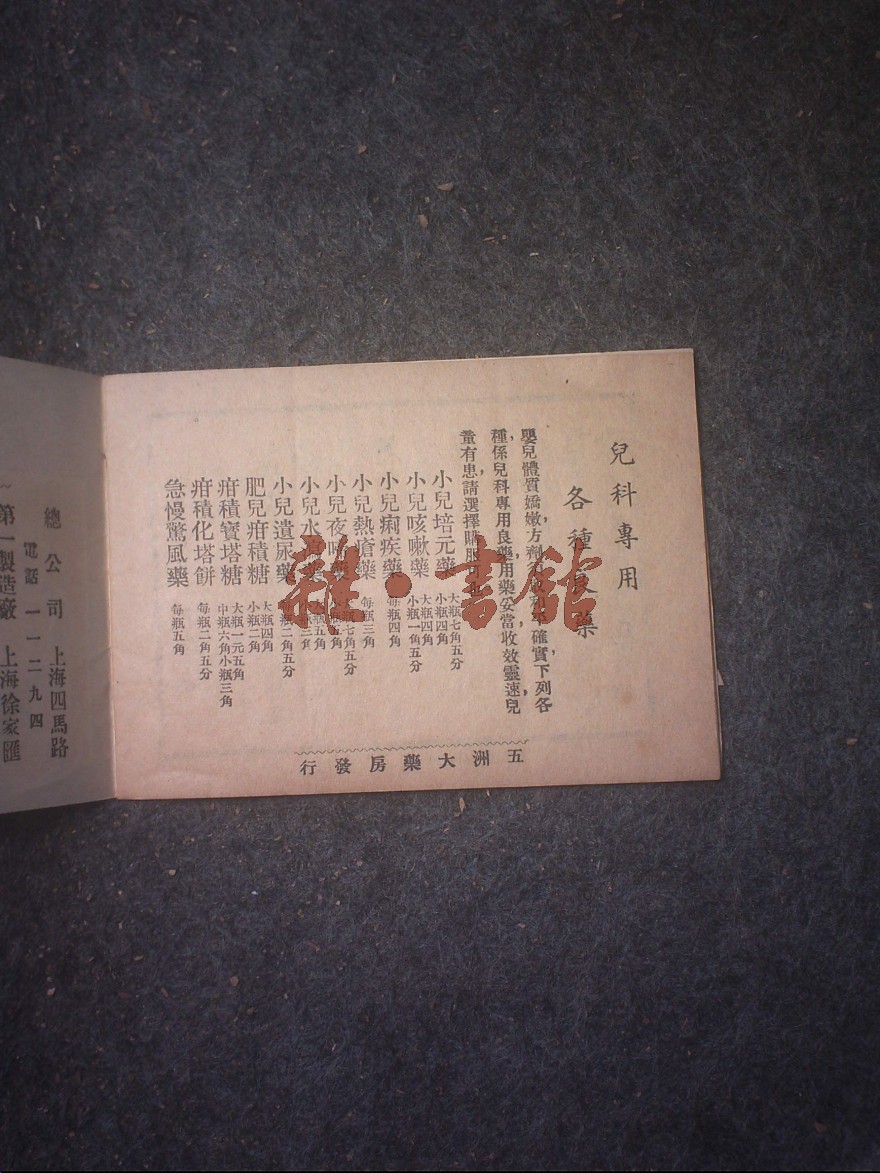 兒科專用
各種良藥
嬰兒體質嬌嫩,方劑須 確實,下列各
種,係兒科專用良藥,用藥妥當,收效靈速,兒
童有患,請選擇購服可也
小兒培元藥 大瓶七角五分 小瓶四角
小兒咳嗽藥 大瓶四角 小瓶一角五分
小兒痢疾藥 每瓶四角
小兒熱瘡藥 每瓶三角
小兒夜啼藥 大瓶七角五分 小瓶
小兒水 藥 大瓶五角 小瓶三角
小兒遺尿藥 每瓶二角五分
肥兒疳積糖 大瓶四角 小瓶二角
疳積寶塔糖 大瓶一元五角 中瓶六角小瓶三角
疳積化塔餅 每瓶二角五分
急慢驚風藥 每瓶五角
五洲大藥房發行
總公司 上海四馬路
電話 一一二九四
第一製造廠 上海徐家匯
雜·書館